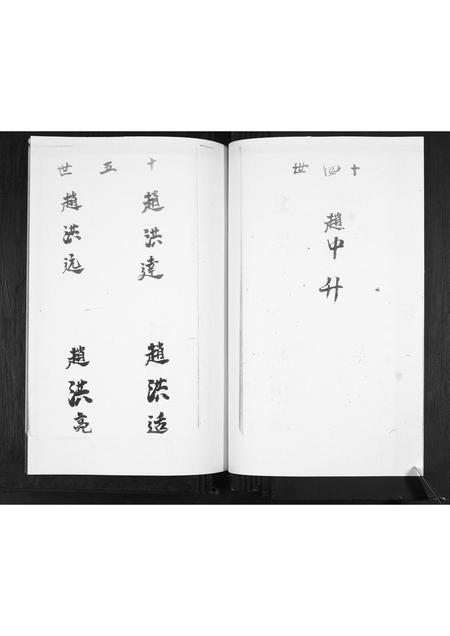 十四世
趙中升
十五世
趙洪達
趙洪适
趙洪远
趙洪亮